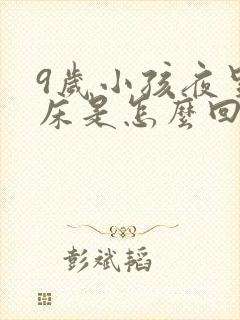 9歲小孩夜
床是怎麼回
彭斌韬